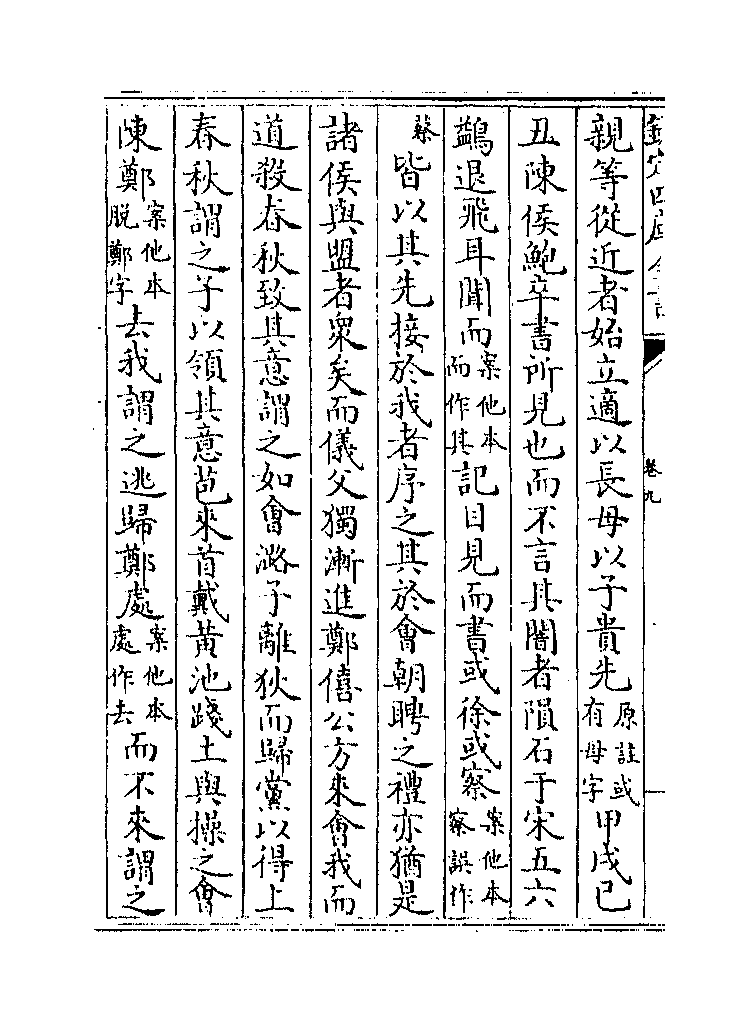 欽定四庫全書
卷九
親等從近者始立適以長母以子貴先原註或有母字甲戌己
丑陳侯鮑卒書所見也而不言其闇者隕石于宋五六
鷁退飛耳聞而案他本而作其記目見而書或徐或察案他本察誤作
蔡皆以其先接於我者序之其於會朝聘之禮亦猶是
諸侯與盟者衆矣而儀父獨漸進鄭僖公方來會我而
道殺春秋致其意謂之如會潞子離狄而歸黨以得上
春秋謂之子以領其意苞來首戴黄池踐土與操之會
陳鄭案他本脱鄭字去我謂之逃歸鄭處案他本處作去而不來謂之